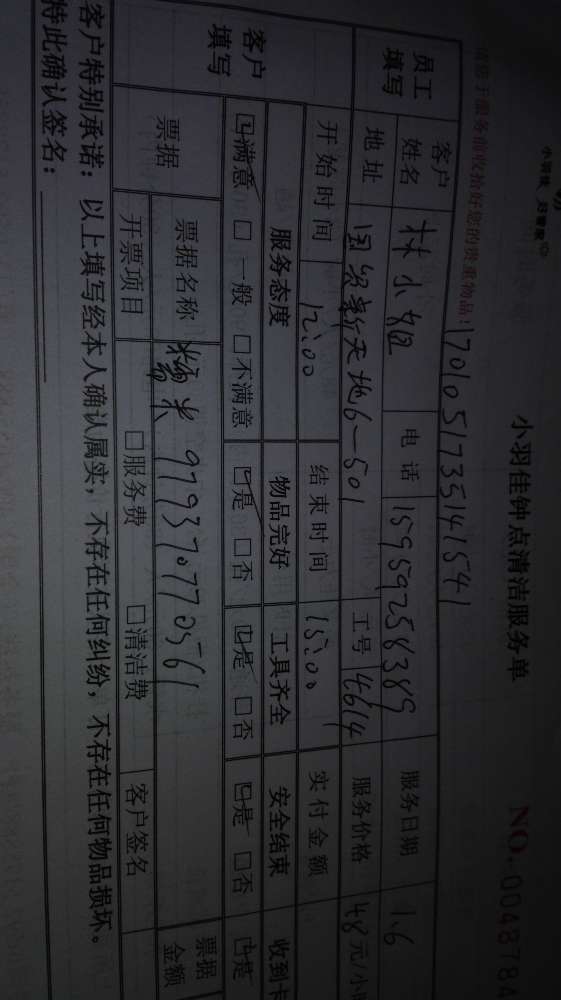 小羽佳钟点清洁服务单
NO. 0048784
小羽佳 好管家
请您于服务前收拾好您的贵重物品! 17010517351471541
员工填写
客户姓名 林小姐 电话 15959258389 服务日期 1.6
地址 新天地6-501 工号 4614 服务价格 48元/小
客户填写
开始时间 12:00 结束时间 15:00 实付金额
服务态度 物品完好 工具齐全 安全结束 收到卡
☑满意 □一般 □不满意 ☑是 □否 ☑是 □否 ☑是 □否 ☑是
票据 票据名称 糯米 9793707770561 票据金额
开票项目 □服务费 □清洁费 客户签名
客户特别承诺：以上填写经本人确认属实，不存在任何纠纷，不存在任何物品损坏。
特此确认签名：